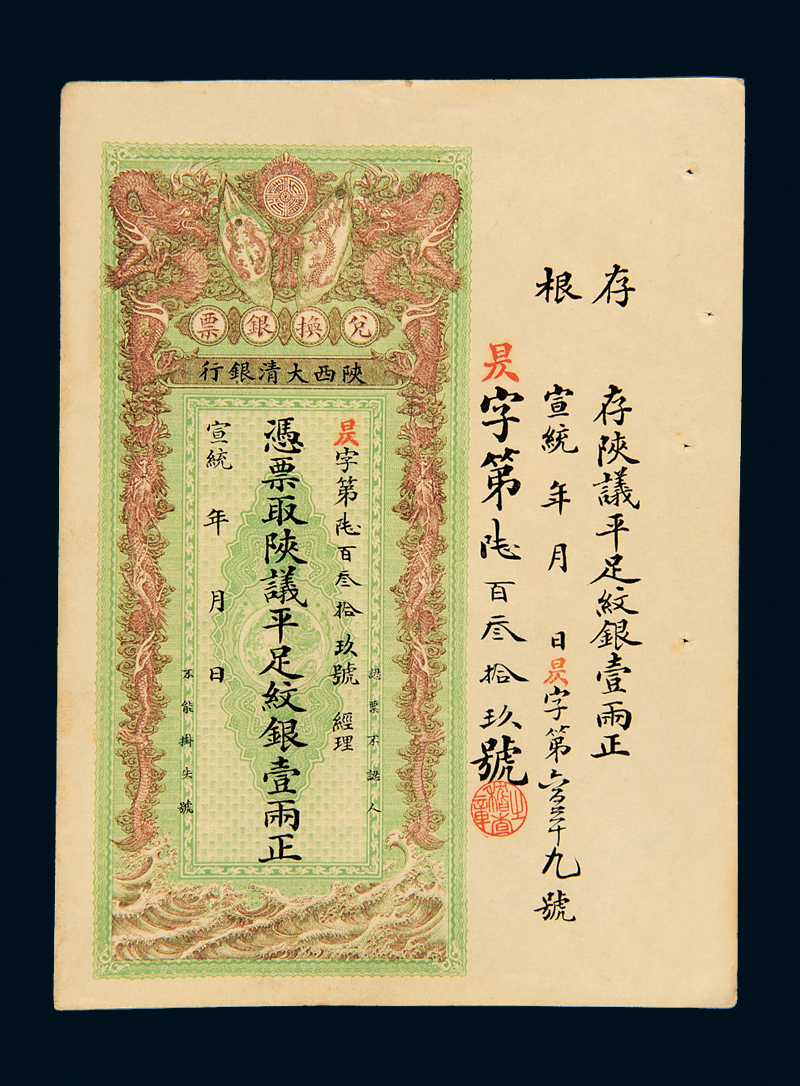 存根
存陝議平足紋銀壹兩正
宣統 年 月 日昃字第六百三十九號
昃字第陸百叁拾玖號
稽查之章
兌換銀票
陝西大清銀行
認票不認人
昃字第陸百叁拾玖號 經理
憑票取陝議平足紋銀壹兩正
宣統 年 月 日
不能掛失號